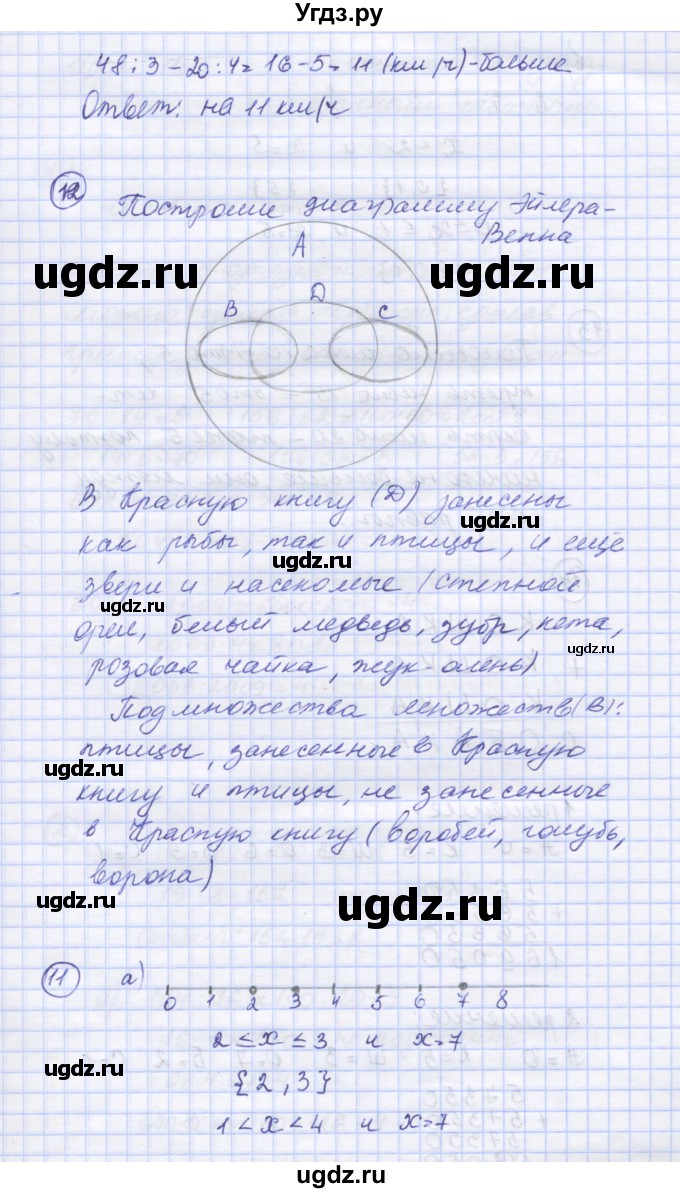 Угдз.ру
48:3-20:4=16-5=11 (км/ч)-больше
Ответ: на 11 км/ч
12 Построим диаграмму Эйлера-
Венна
A
ugdz.ru
ugdz.ru
B D C
В Красную книгу (D) занесены
ugdz.ru
как рыбы, так и птицы, и ещё
звери и насекомые (степной
орел, белый медведь, зубр, кета,
розовая чайка, жук-олень)
Подмножества множеств(В):
птицы, занесенные в Красную
ugdz.ru
книгу и птицы, не занесенные
в Красную книгу (воробей, голубь,
ворона)
ugdz.ru
ugdz.ru
11 а)
0 1 2 3 4 5 6 7 8
2 ≤ x ≤ 3 и x=7
{2, 3}
1 < x < 4 и x=7
ugdz.ru